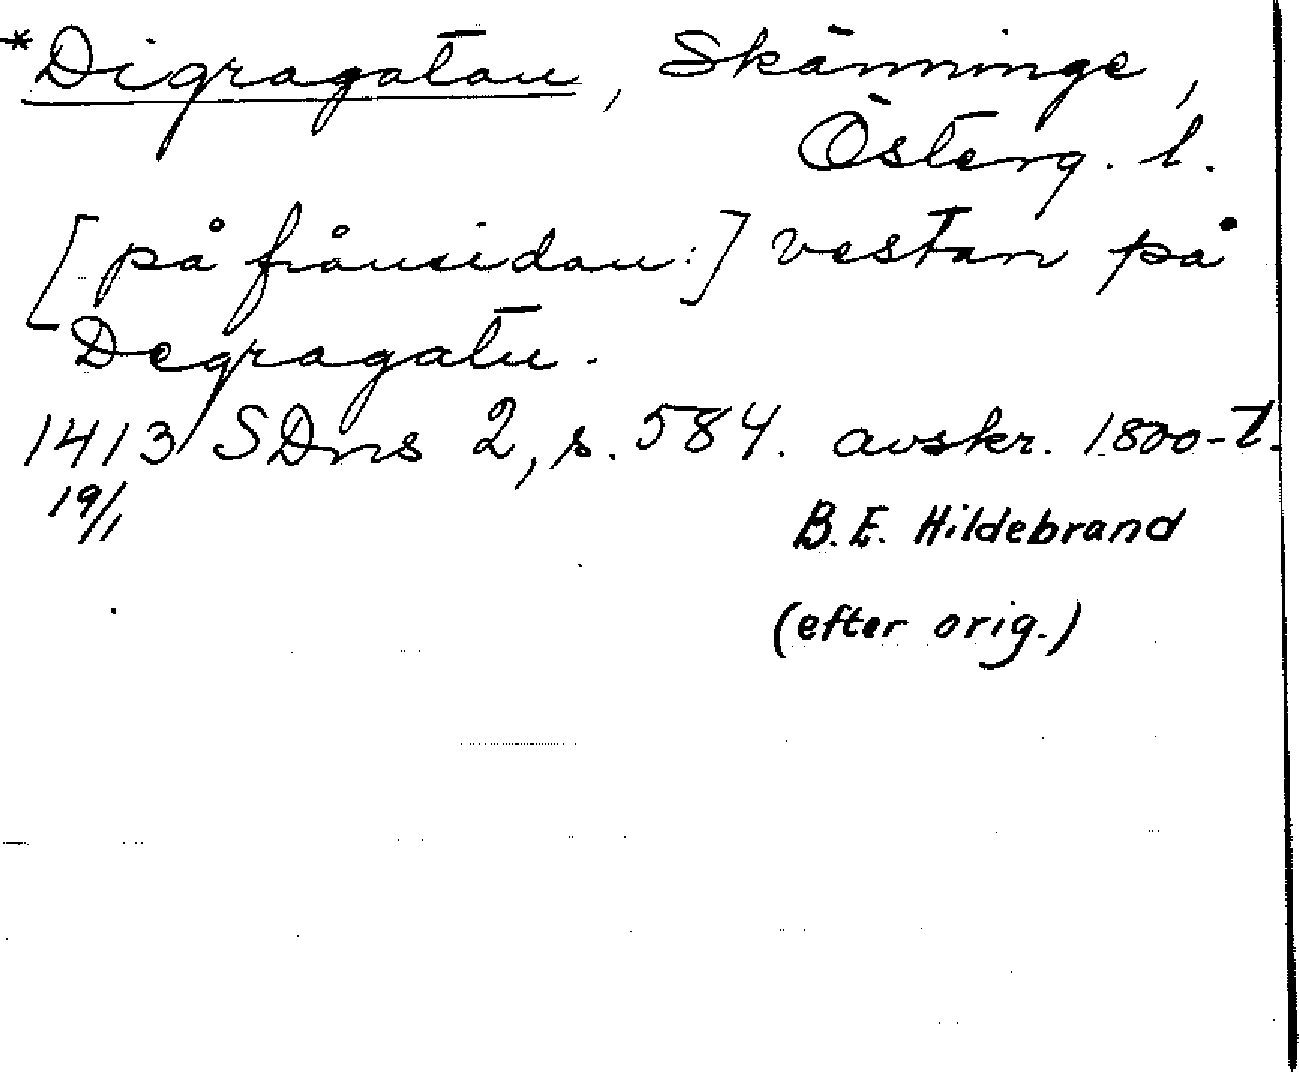 *Digragatan, Skänninge,
Österg. l.
[på frånsidan:] vestan på
Degragatu.
1413 SDns 2, s. 584. avskr. 1800-t.
19/1
B. E. Hildebrand
(efter orig.)